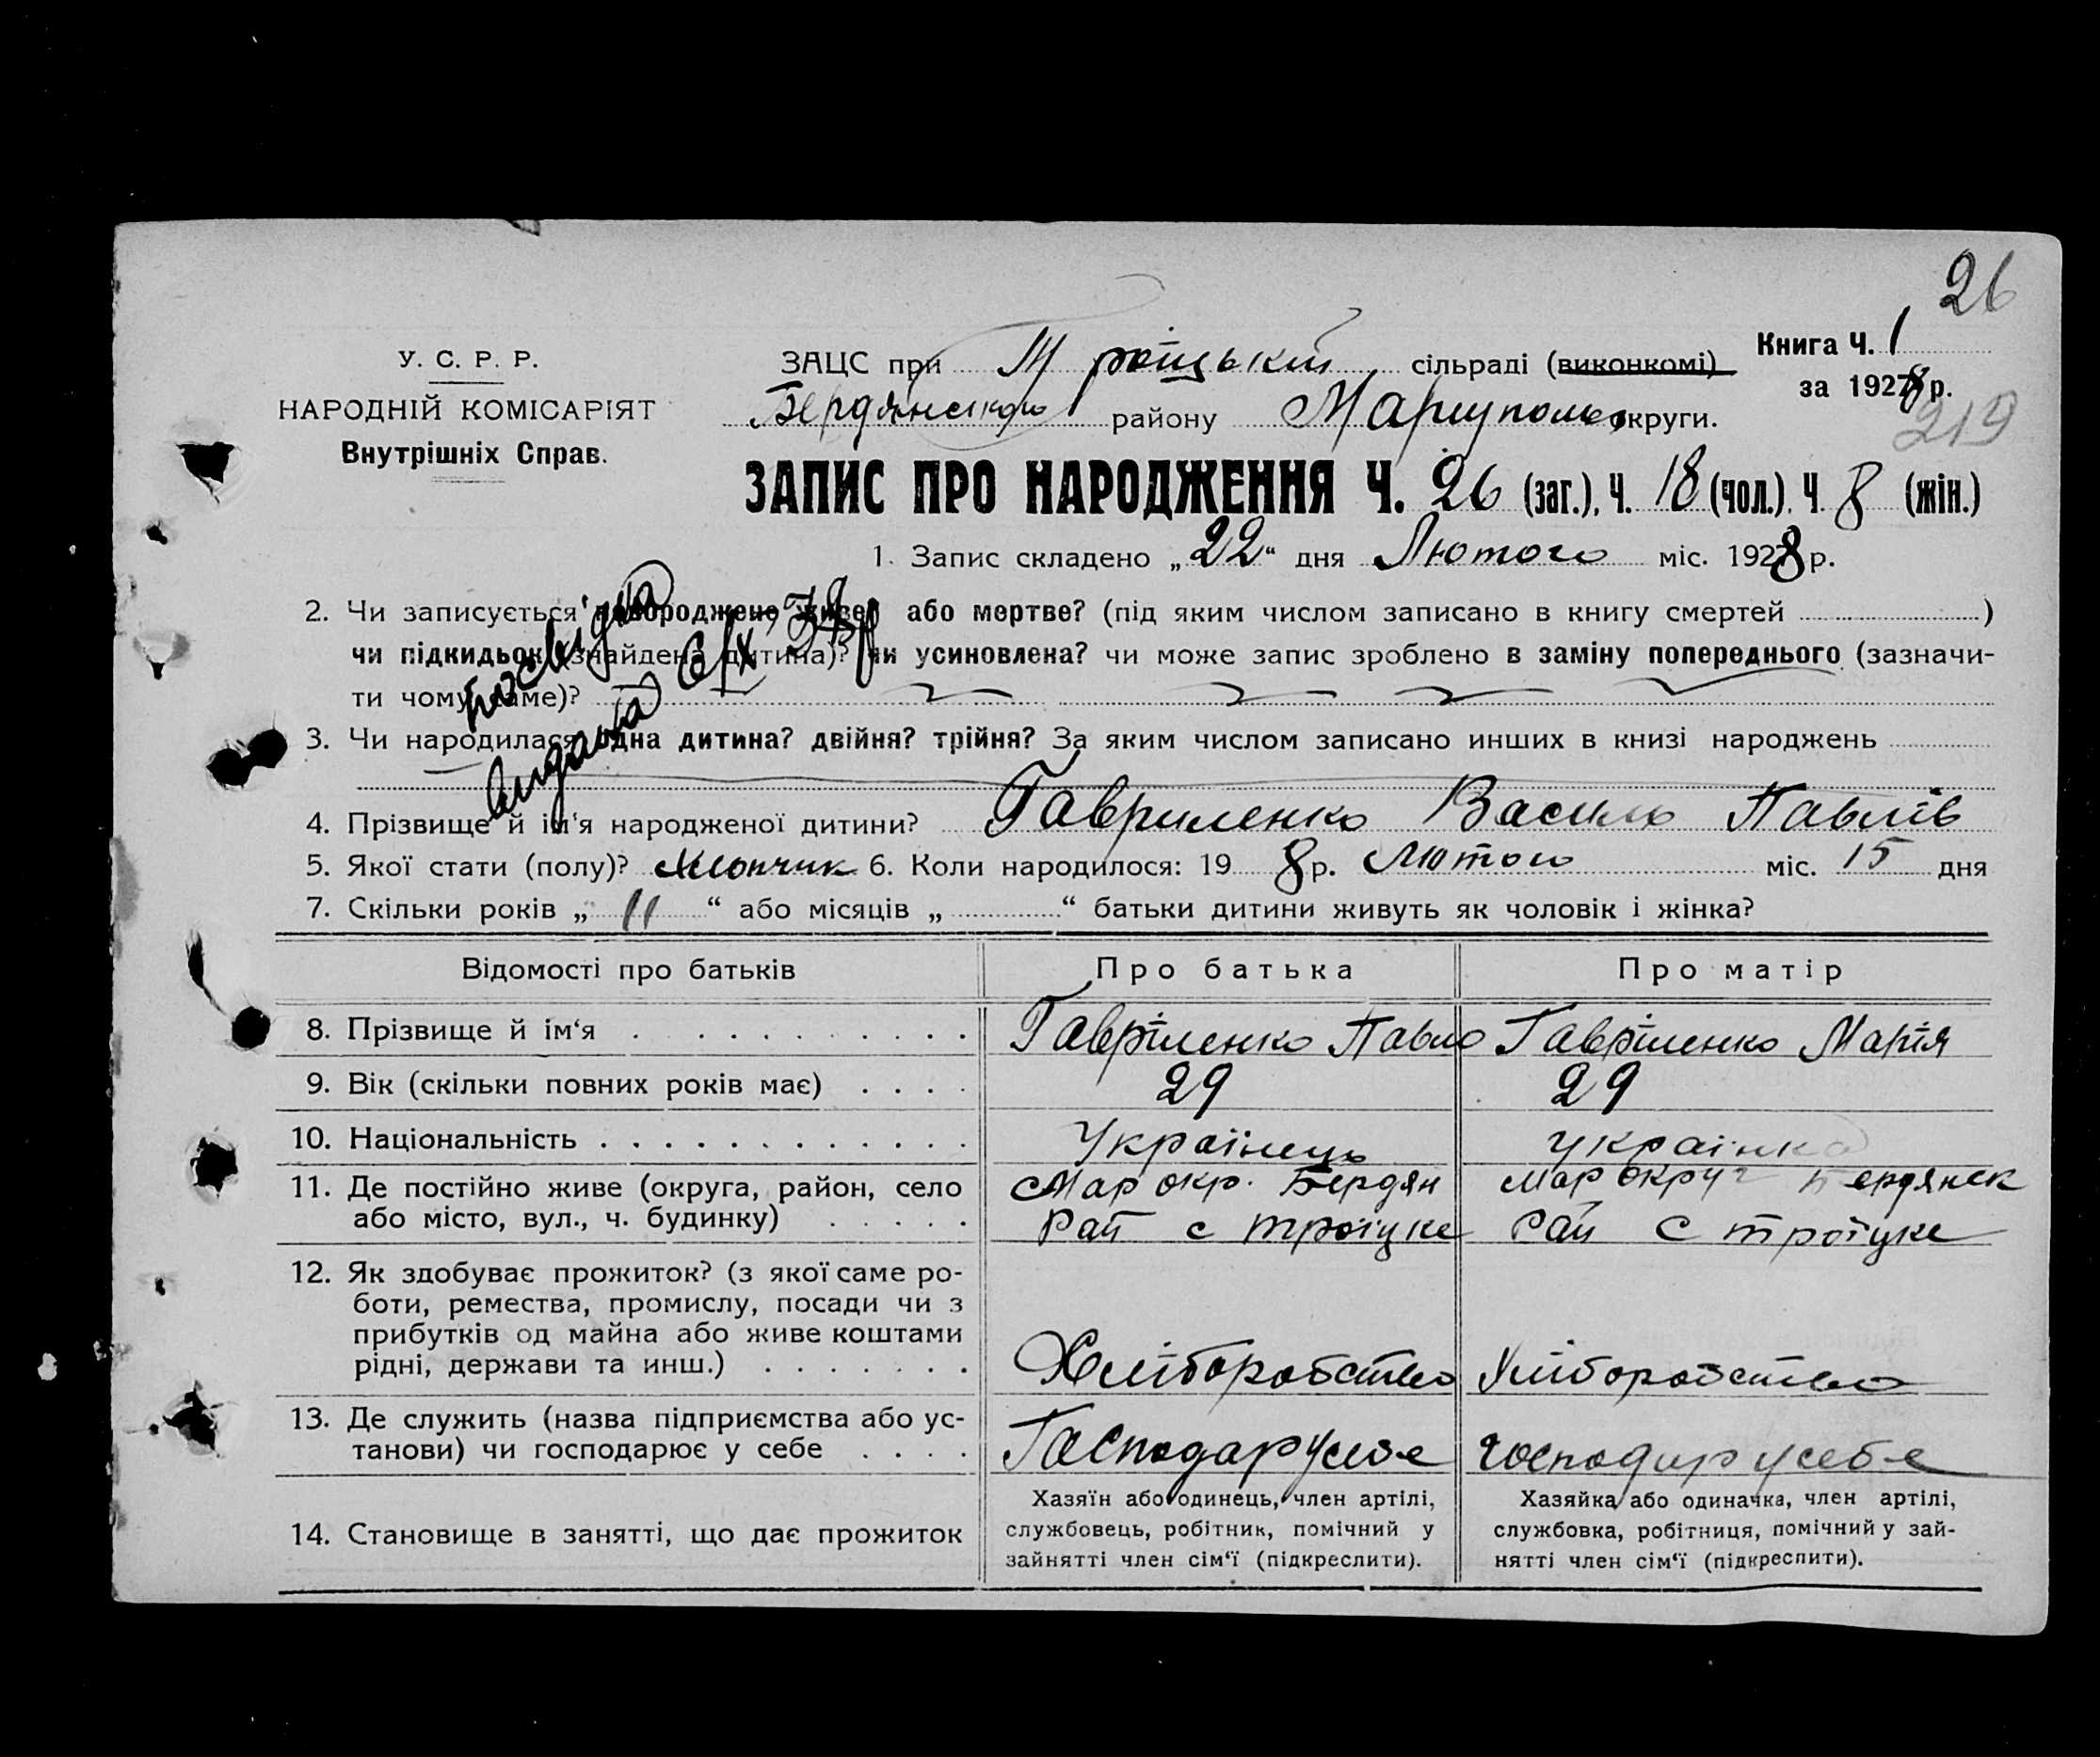 26
У. С. Р. Р.
НАРОДНІЙ КОМІСАРІЯТ
Внутрішніх Справ.
ЗАЦС при Троїцькій сільраді (виконкомі)
Книга Ч. 1
за 1928 р.
Бердянського району Маріуполь округи.
219
ЗАПИС ПРО НАРОДЖЕННЯ Ч. 26 (заг.), Ч. 18 (чол.). Ч. 8 (жін.)
1. Запис складено „22“ дня Лютого міс. 1928 р.
2. Чи записується новороджене живе або мертве? (під яким числом записано в книгу смертей )
чи підкидьок (знайдена дитина)? чи усиновлена? чи може запис зроблено в заміну попереднього (зазначи-
ти чому саме)?
3. Чи народилася одна дитина? двійня? трійня? За яким числом записано инших в книзі народжень
4. Прізвище й ім‘я народженої дитини? Гавриленко Василь Павлів
5. Якої стати (полу)? Хлопчик 6. Коли народилося: 19 8 р. Лютого міс. 15 дня
7. Скільки років „ 11 “ або місяців „ “ батьки дитини живуть як чоловік і жінка?
Відомості про батьків Про батька Про матір
8. Прізвище й ім‘я Гавріленко Павло Гавріленко Марія
9. Вік (скільки повних років має) 29 29
10. Національність Українець українка
11. Де постійно живе (округа, район, село Мар окр. Бердян мар округ Бердянск
або місто, вул., ч. будинку) рай с троїцке рай с троїцке
12. Як здобуває прожиток? (з якої саме ро-
боти, ремества, промислу, посади чи з
прибутків од майна або живе коштами
рідні, держави та инш.) Хліборобство Хліборобство
13. Де служить (назва підприємства або ус-
танови) чи господарює у себе Господар у себе господар у себе
14. Становище в занятті, що дає прожиток
Хазяїн або одинець, член артілі,
службовець, робітник, помічний у
зайнятті член сім‘ї (підкреслити).
Хазяйка або одиначка, член артілі,
службовка, робітниця, помічний у зай-
нятті член сім‘ї (підкреслити).
посвідка
видана 6/X 37 р